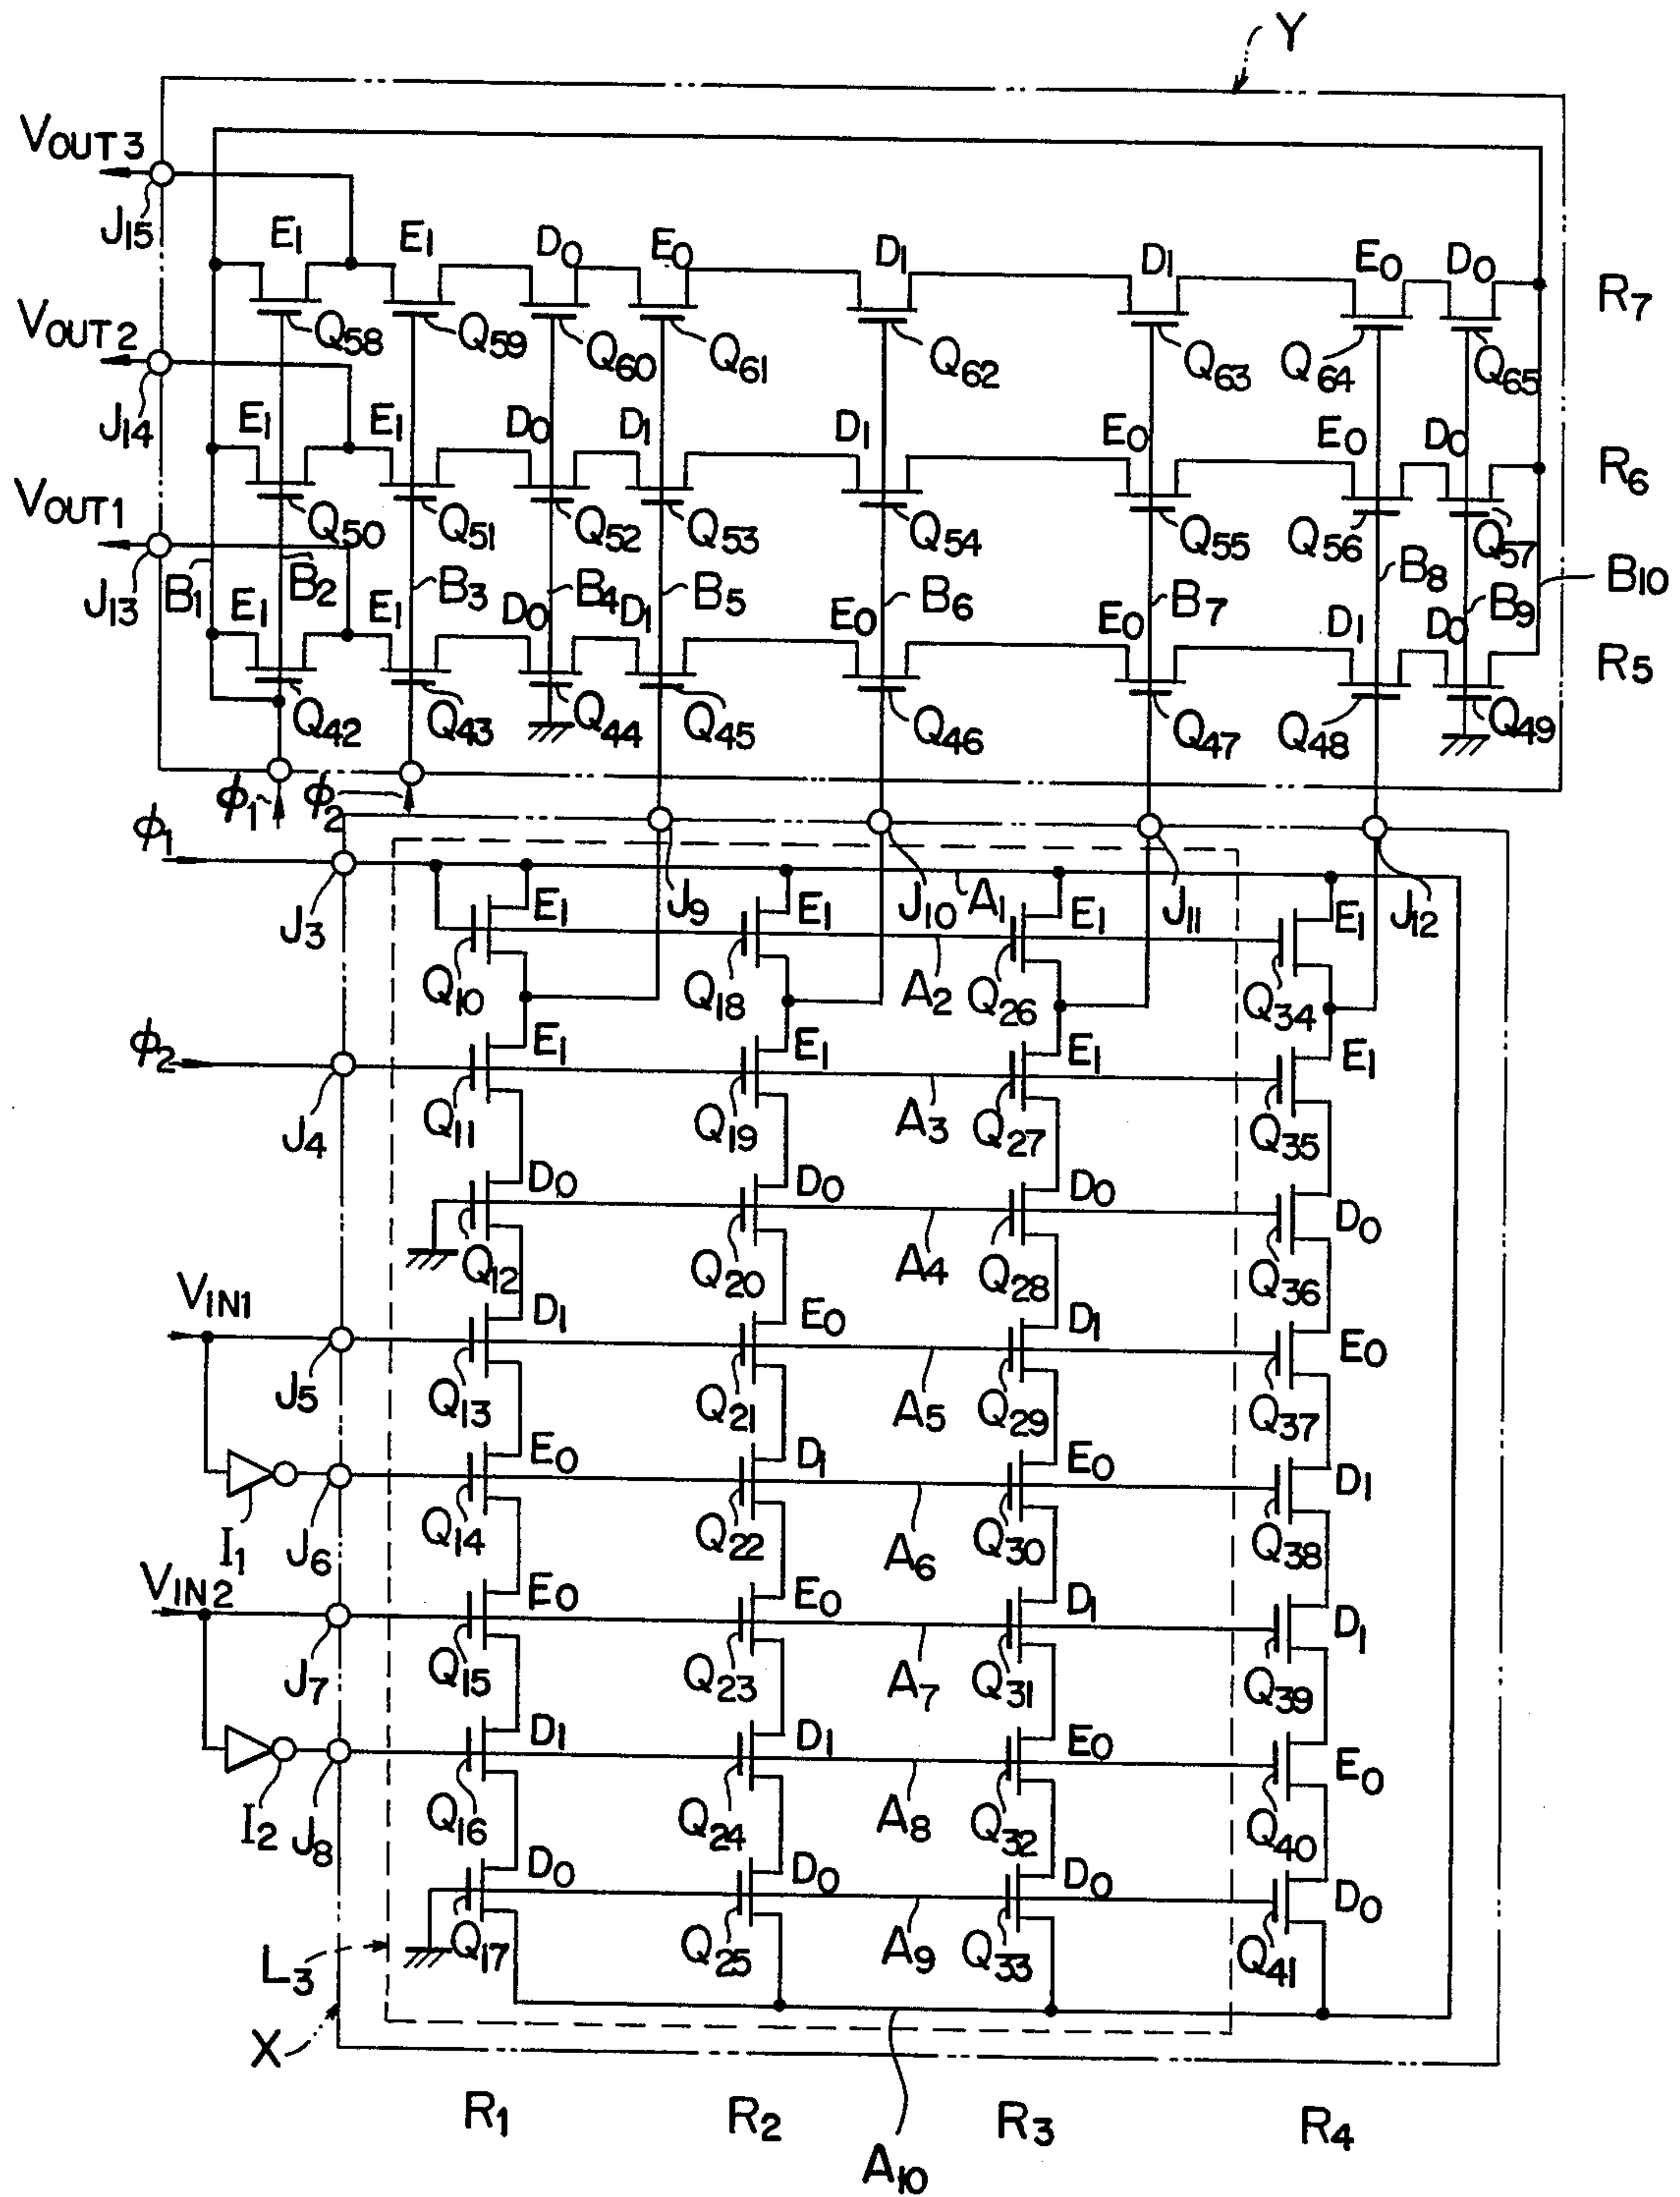 Y
VOUT3
J15
E1 E1 D0 E0 D1 D1 E0 D0 R7
Q58 Q59 Q60 Q61 Q62 Q63 Q64 Q65
VOUT2
J14
E1 E1 D0 D1 D1 E0 E0 D0 R6
Q50 Q51 Q52 Q53 Q54 Q55 Q56 Q57
VOUT1
J13
B1 B2 B3 B4 B5 B6 B7 B8 B9 B10
E1 E1 D0 D1 E0 E0 D1 D0 R5
Q42 Q43 Q44 Q45 Q46 Q47 Q48 Q49
ϕ1 ϕ2
ϕ1
J3 J9 J10 A1 J11 J12
E1 E1 E1 E1
Q10 Q18 A2 Q26 Q34
ϕ2
J4
E1 E1 E1 E1
Q11 Q19 A3 Q27 Q35
D0 D0 D0 D0
Q12 Q20 A4 Q28 Q36
VIN1
J5
D1 E0 D1 E0
Q13 Q21 A5 Q29 Q37
E0 D1 E0 D1
I1 J6 Q14 Q22 A6 Q30 Q38
VIN2
J7
E0 E0 D1 D1
Q15 Q23 A7 Q31 Q39
D1 D1 E0 E0
I2 J8 Q16 Q24 A8 Q32 Q40
D0 D0 D0 D0
L3 Q17 Q25 A9 Q33 Q41
X
R1 R2 R3 R4
A10